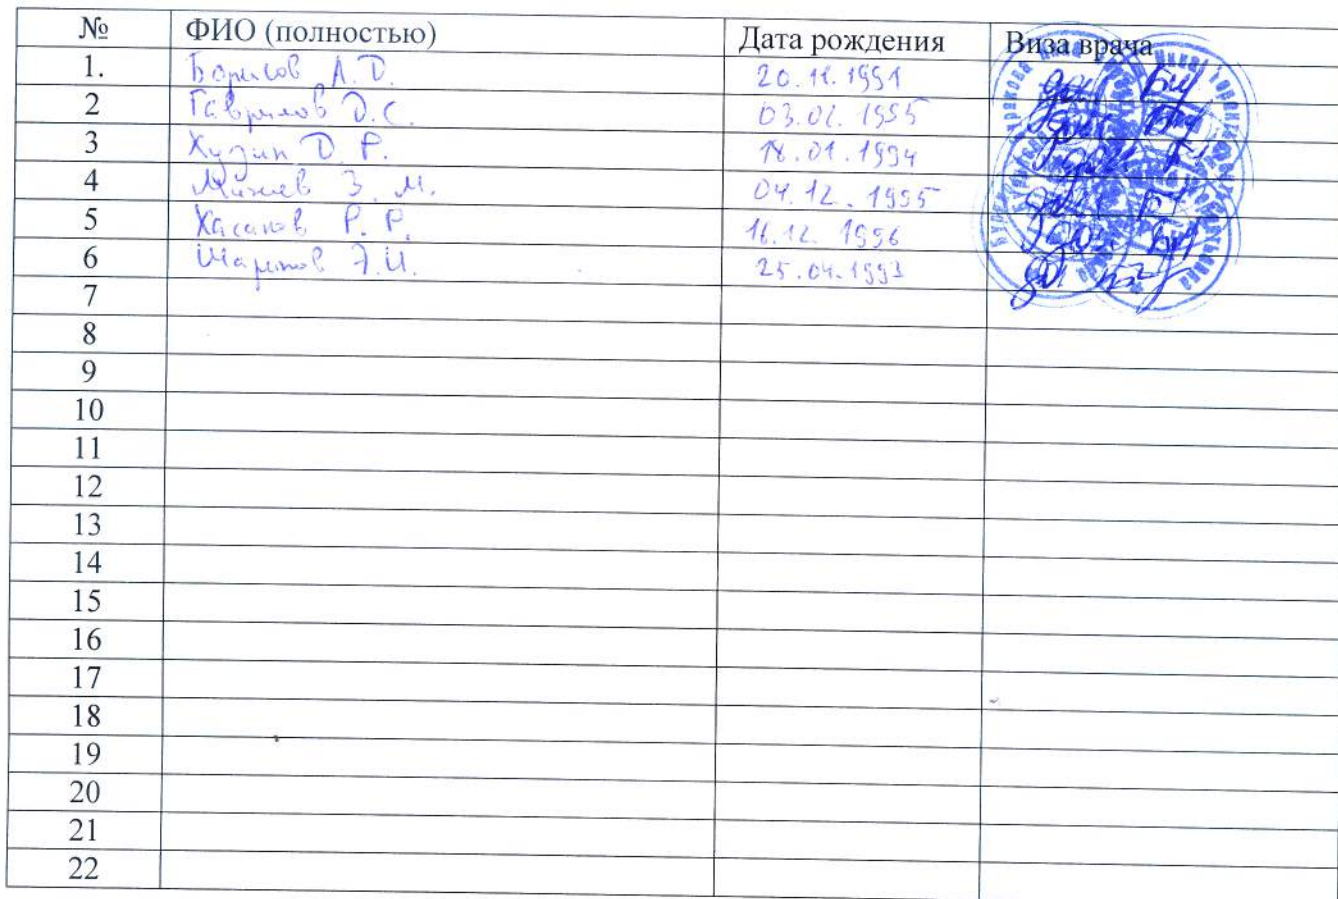 № ФИО (полностью) Дата рождения Виза врача
1. Борисов А.D. 20.11.1991 доп
2 Гаврилов D.С. 03.02.1995 доп
3 Худин D.Р. 18.01.1994 доп
4 З.М. 04.12.1995 доп
5 Хасанов Р.Р. 16.12.1996 доп
6 Шарипов Э.И. 25.04.1993 доп
7
8
9
10
11
12
13
14
15
16
17
18
19
20
21
22